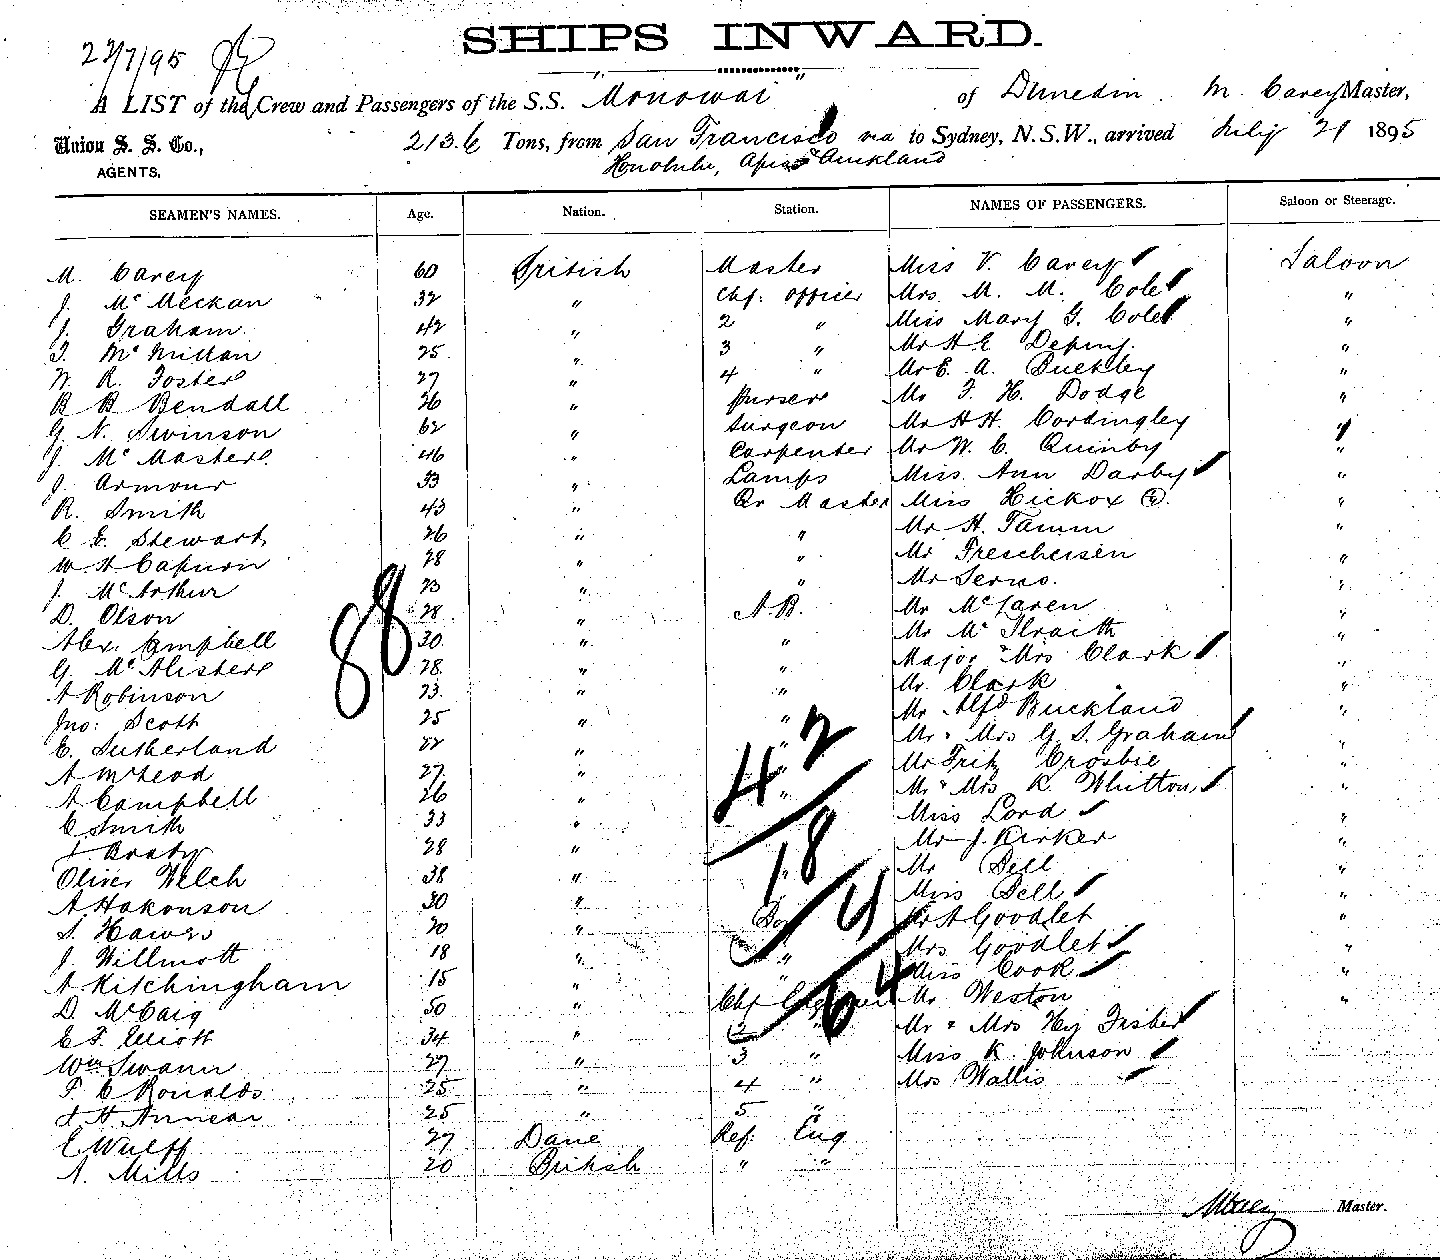 SHIPS INWARD.
22/7/95
A LIST of the Crew and Passengers of the S.S. "Monowai" of Dunedin. M. Carey Master,
Union S. S. Co., 2136 Tons, from San Francisco via to Sydney, N.S.W., arrived July 21 1895
AGENTS. Honolulu, Apia & Auckland
SEAMEN'S NAMES. Age. Nation. Station. NAMES OF PASSENGERS. Saloon or Steerage.
M. Carey 60 British Master Miss V. Carey Saloon
J. McMeckan 32 " Chf. Officer Mrs. M. M. Cole "
J. Graham 42 " 2 " Miss Mary G. Cole "
McMillan 25 " 3 " Mr H E "
W. R. Foster 27 " 4 " Mr E. A. Buckley "
B B Bendall 26 " Purser Mr F. H. Dodge "
G. N. Swinson 62 " Surgeon Mr H H. Cordingley "
J. McMaster 46 " Carpenter Mr W. C. Quinby "
J. Armour 53 " Lamps Miss Ann Darby "
R. Smith 43 " Qr Master Miss Hickox "
C E. Stewart 26 " " Mr H. Tamm "
W. H Capurn 28 " " Mr "
J. McArthur 23 " " Mr "
D. Olson 28 " A. B. Mr McLaren "
Alex. Campbell 30 " " Mr McIlraith "
G. McAlister 28 " " Major & Mrs Clark "
A Robinson 23 " " Mr. Clark "
Jno: Scott 25 " " Mr Alfd Buckland "
E. Sutherland 22 " " Mr & Mrs G. S. Graham "
A McLeod 27 " " Mr Fritz Crosbie "
A Campbell 26 " " Mr & Mrs R. Whitton "
C Smith 33 " Miss Lord "
Brady 28 " Mr J. Kirker "
Oliver Welch 38 " " Mr Bell "
A Hakonson 30 " Miss Bell "
S. Hawes 20 " Boy Mr A Goodlet "
J. Willmott 18 " " Mrs Goodlet "
A Kitchingham 15 " " Miss Cook "
D. McCaig 50 " Chf Engineer Mr Weston "
C F. Elliott 34 " 2 " Mr & Mrs Hy Fisher
Wm Swann 27 " 3 " Miss K. Johnson
F. C Ronalds 25 " 4 " Mrs Wallis
H. Annear 25 " 5 "
C Wulff 27 Dane Ref: Eng
A. Mills 20 British " "
88
42
18
4
64
M Carey Master.